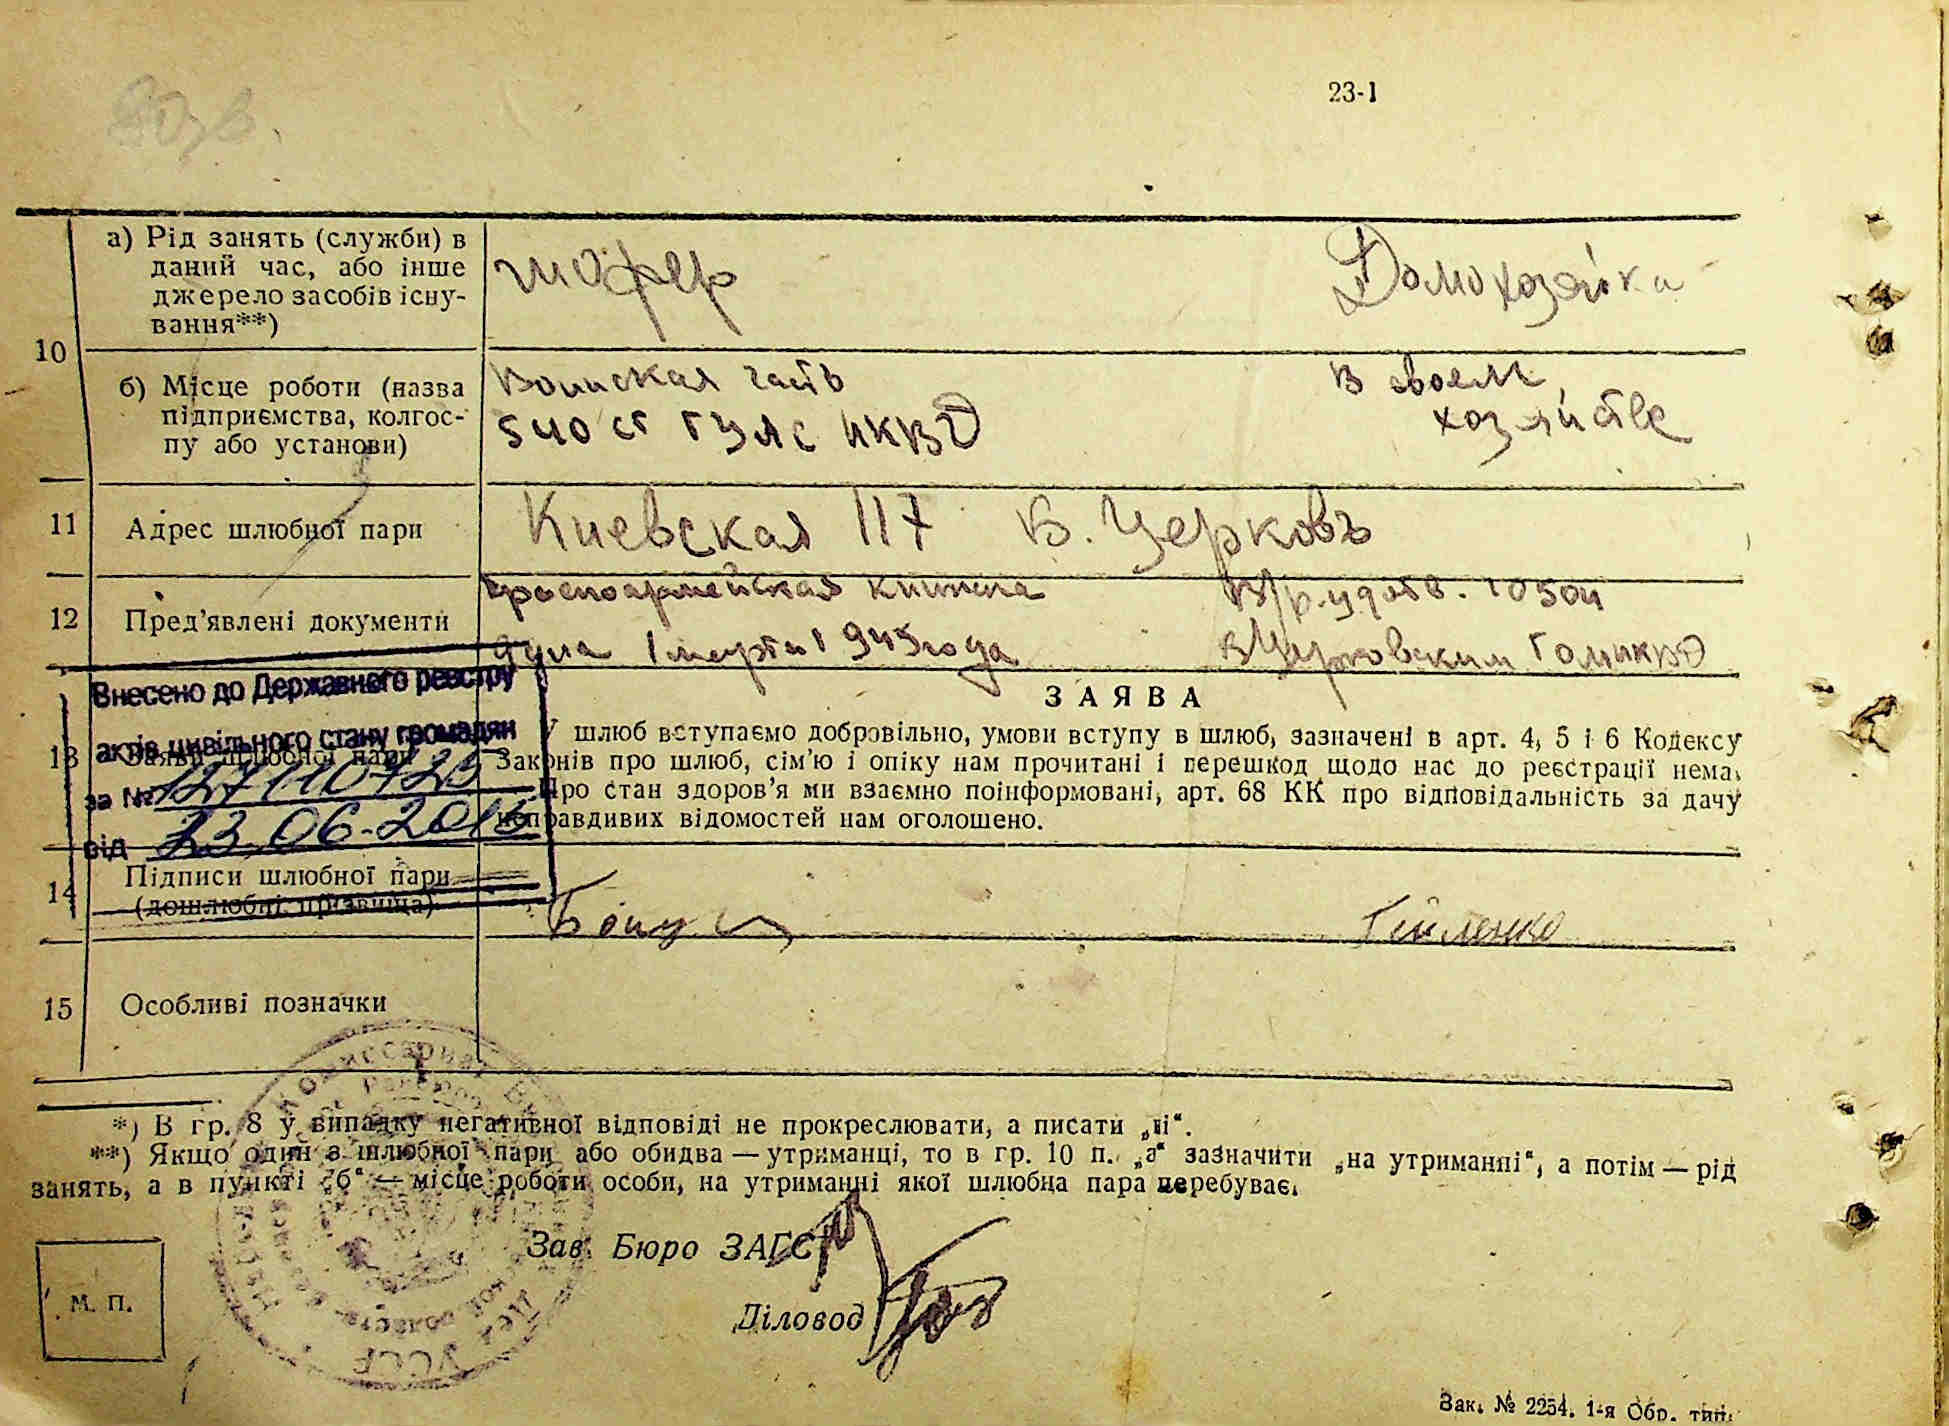 23-1
а) Рід занять (служби) в
даний час, або інше
джерело засобів існу-
вання**)
шофер
Домохозяйка
10
б) Місце роботи (назва
підприємства, колгос-
пу або установи)
Воинская часть
в своем
хозяйстве
НКВД
11
Адрес шлюбної пари
Киевская 117 Б. Церковь
12
Пред’явлені документи
красноармейская книжка
1 марта 1945 года
10504
Внесено до Державного реєстру
актів цивільного стану громадян
за №
від 23.06.2016
13
Заява шлюбної пари
ЗАЯВА
У шлюб вступаємо добровільно, умови вступу в шлюб, зазначені в арт. 4, 5 і 6 Кодексу
Законів про шлюб, сім’ю і опіку нам прочитані і перешкод щодо нас до реєстрації нема.
Про стан здоров’я ми взаємно поінформовані, арт. 68 КК про відповідальність за дачу
неправдивих відомостей нам оголошено.
14
Підписи шлюбної пари
(дошлюбні прізвища)
15
Особливі позначки
*) В гр. 8 у випадку негативної відповіді не прокреслювати, а писати „ні“.
**) Якщо один з шлюбної пари або обидва — утриманці, то в гр. 10 п. „а“ зазначити „на утриманні“, а потім — рід
занять, а в пункті „б“ — місце роботи особи, на утриманні якої шлюбна пара перебуває.
Зав. Бюро ЗАГС
Діловод
М. П.
УССР
Зак. № 2254. 1-я Обр. тип.